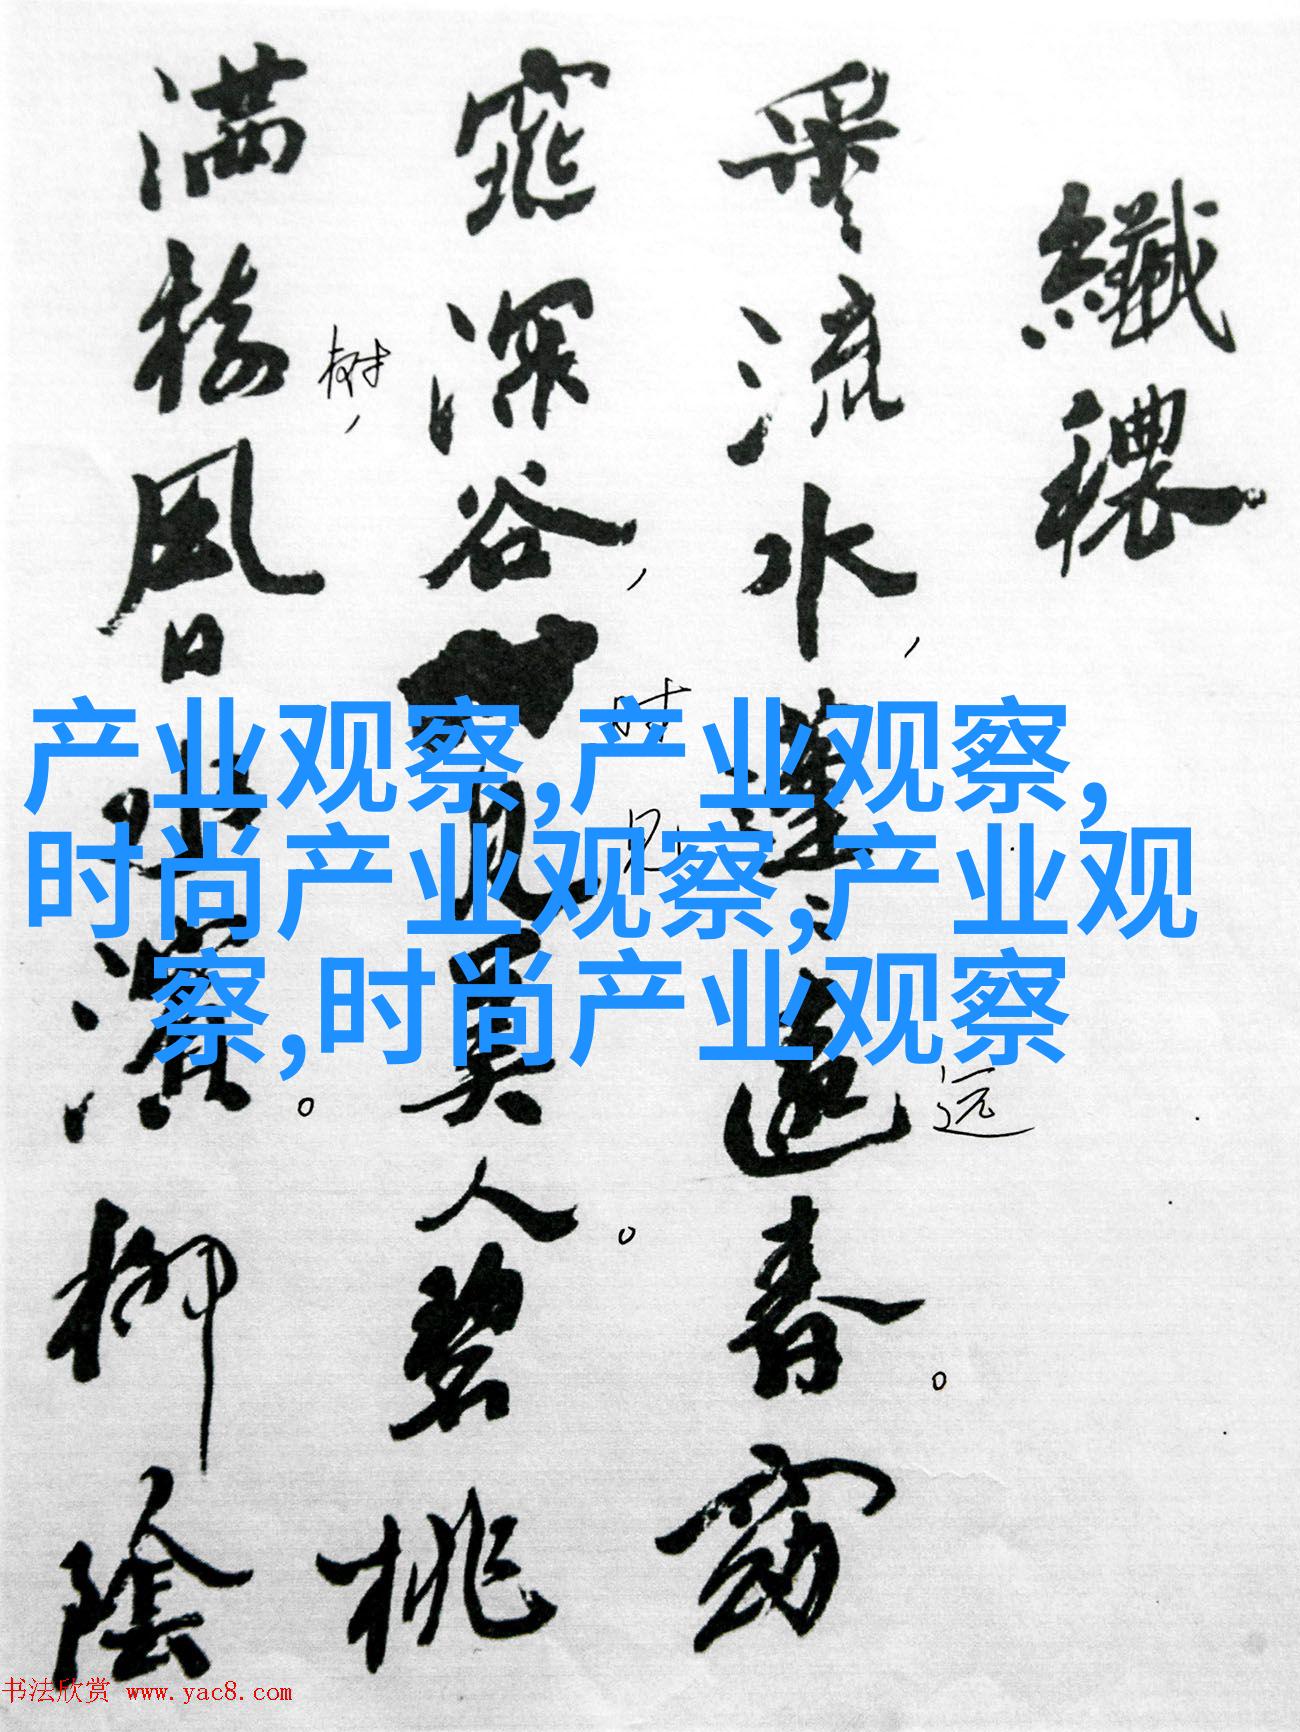 纖穠
采流水，蓬蓬遠春。窈
窕深谷，時見美人。碧桃
满樹風日水濱。柳陰
远
时
见
树，
产业观察,产业观察,
时尚产业观察,产业观
察,时尚产业观察
书法欣赏 www.yac8.com